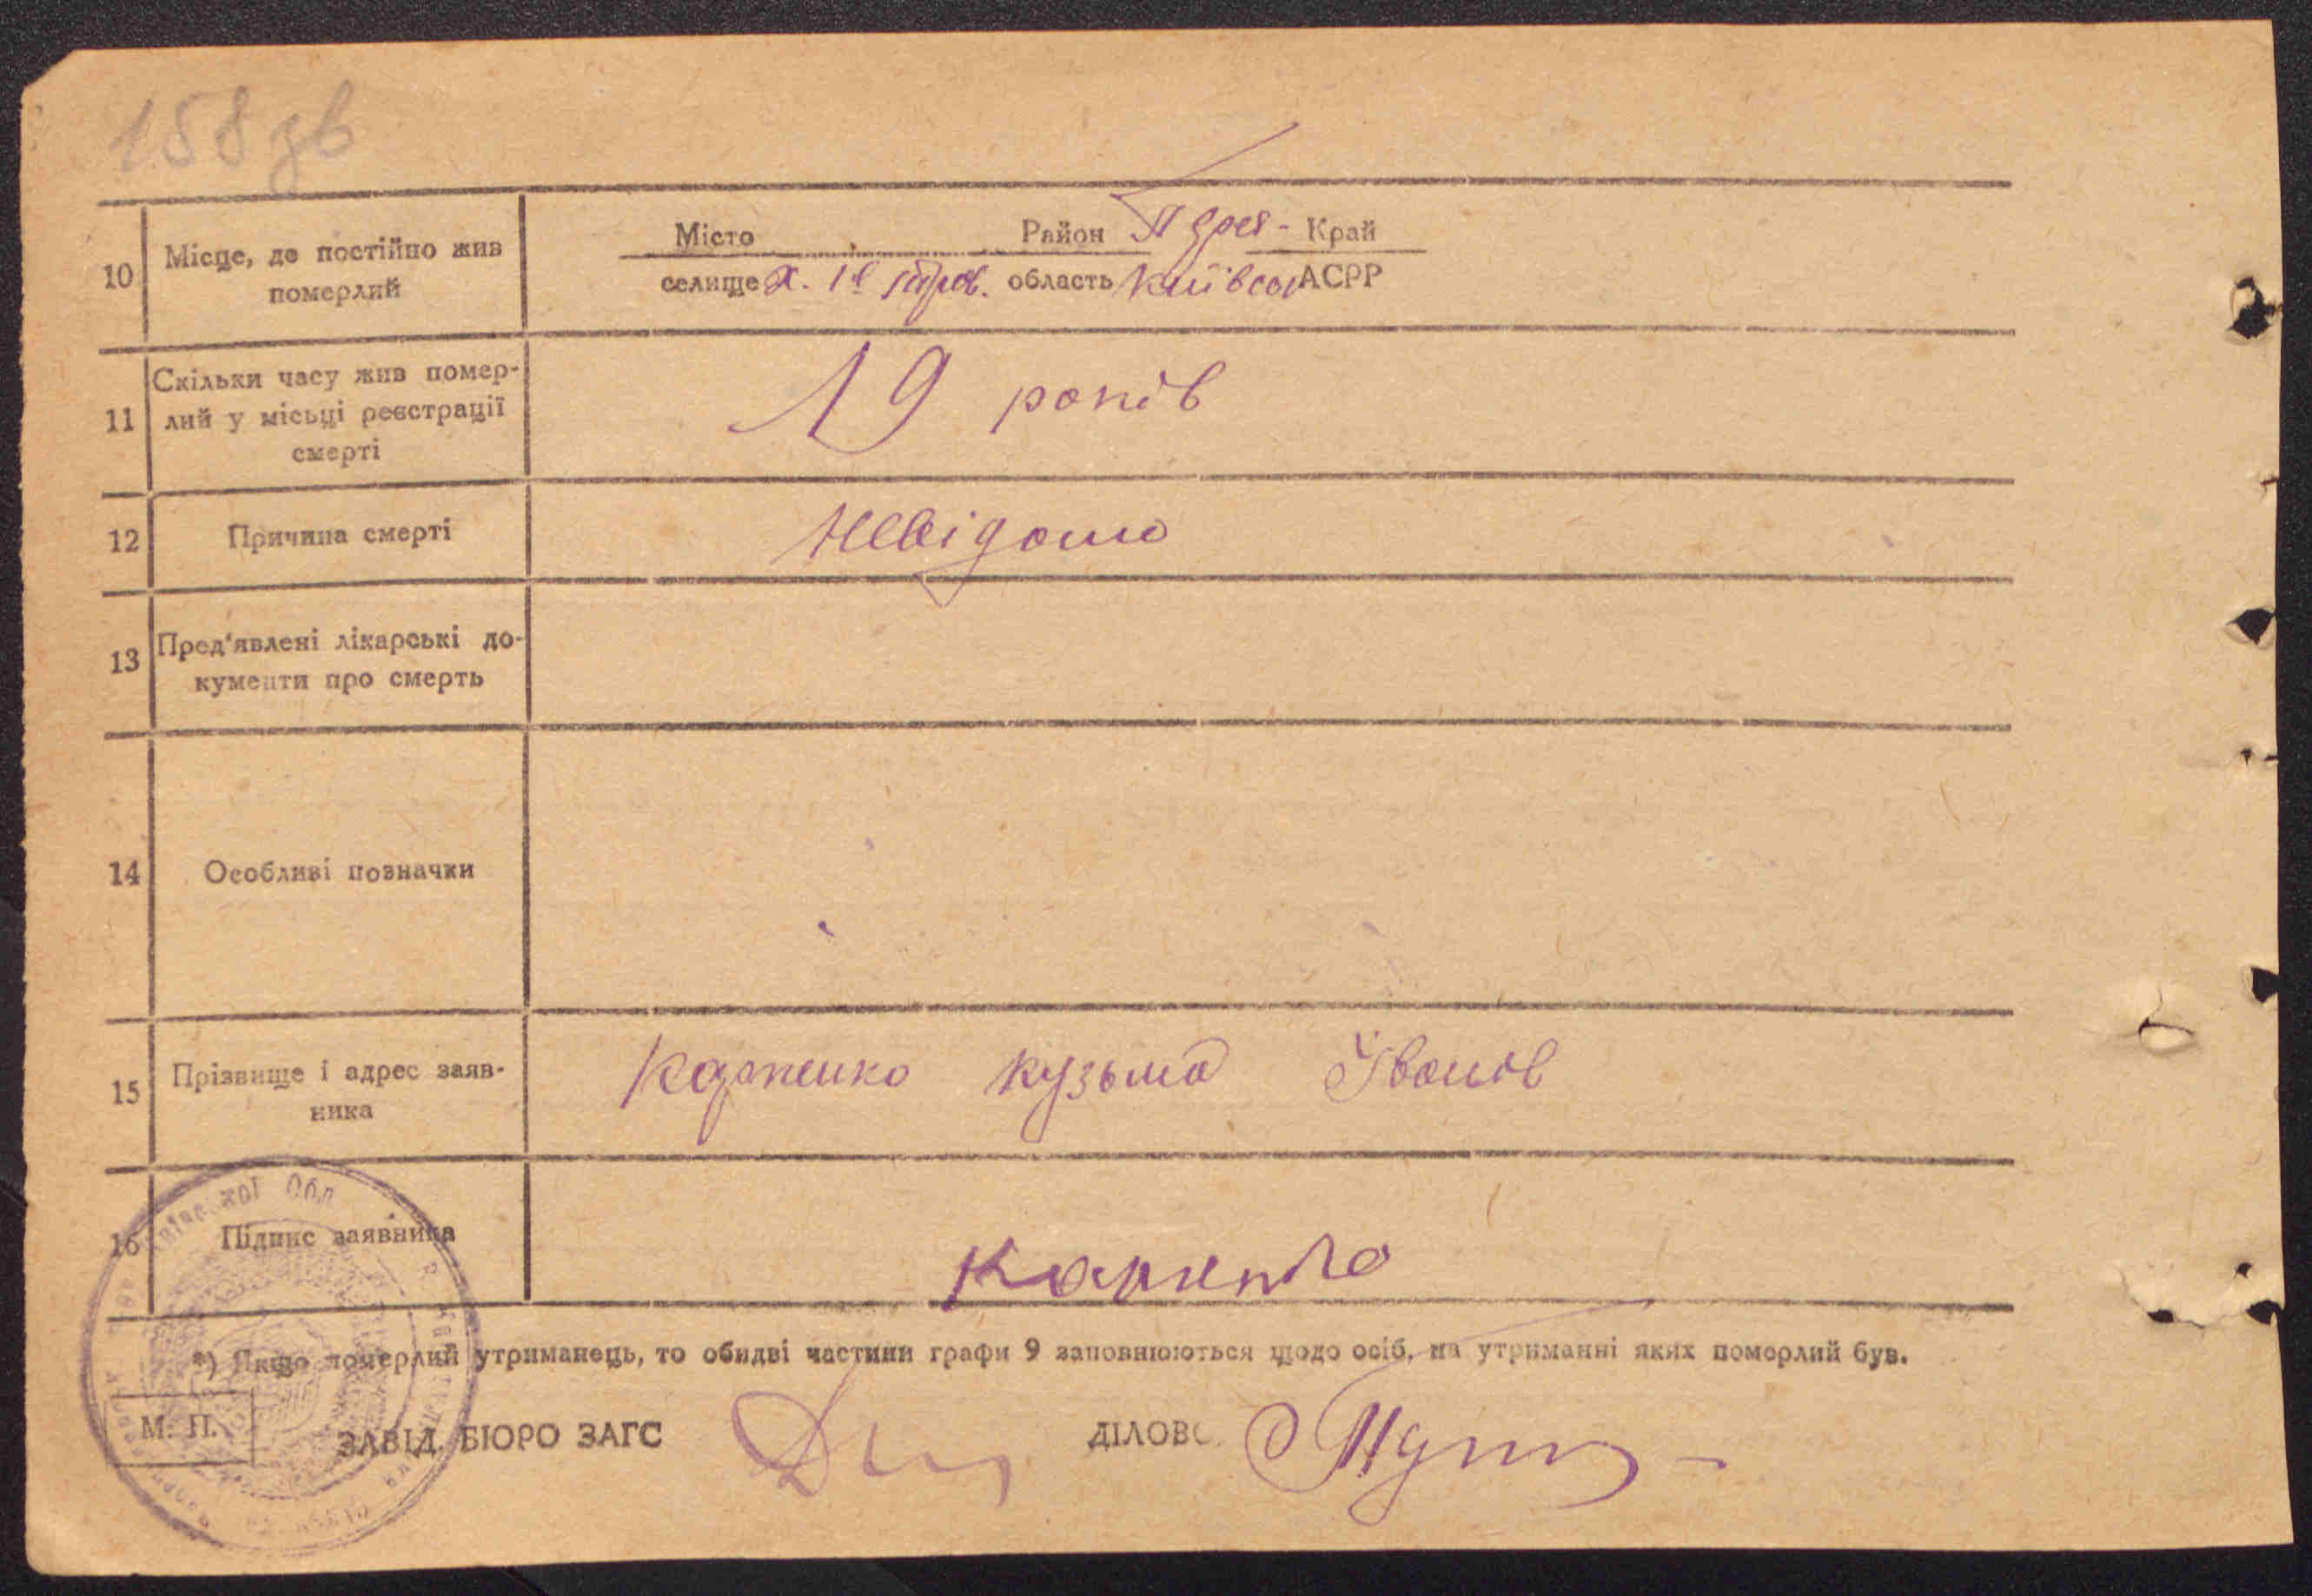 158 зв
Місто Район Край
10 Місце, де постійно жив померлий
селище х. 1е область Київська АСРР
11 Скільки часу жив помер-
лий у місьці реєстрації
смерті
19 років
12 Причина смерті Невідомо
13 Пред'явлені лікарські до-
кументи про смерть
14 Особливі позначки
15 Прізвище і адрес заяв-
ника
Карпенко Кузьма Іванов
16 Підпис заявника
*) Якщо померлий утриманець, то обидві частини графи 9 заповнюються щодо осіб, на утриманні яких померлий був.
М. П. ЗАВІД. БЮРО ЗАГС ДІЛОВ